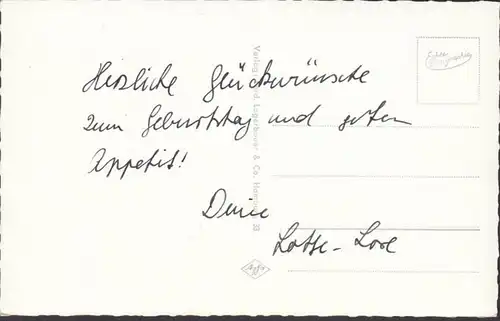 Herzliche Glückwünsche
zum Geburtstag und guten
Appetit!
Deine
Lotte-Lore
Verlag
& Co.
Agfa
Echte